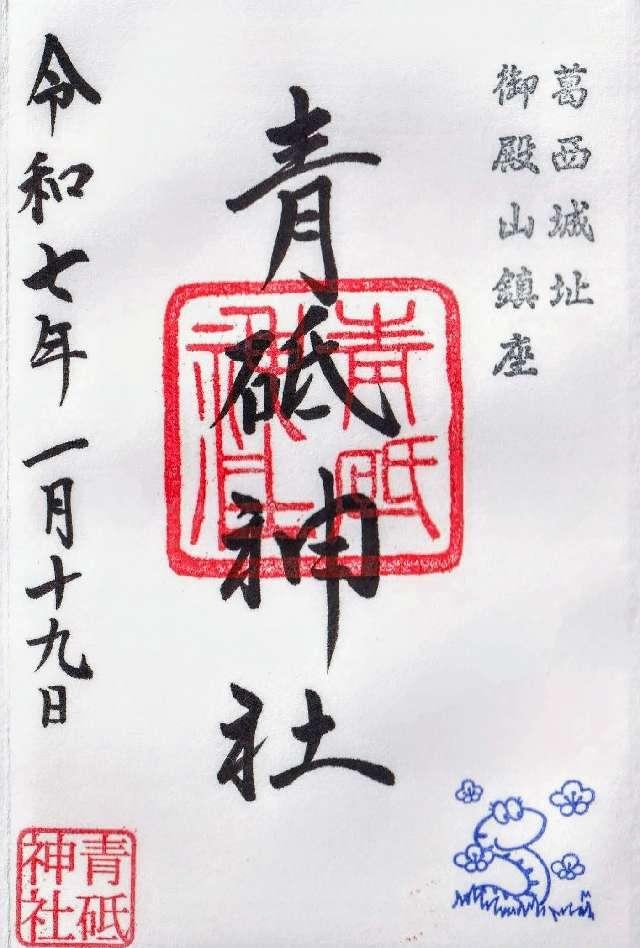 葛西城址
御殿山鎮座
青砥神社
青砥
神社
令和七年一月十九日
青砥
神社